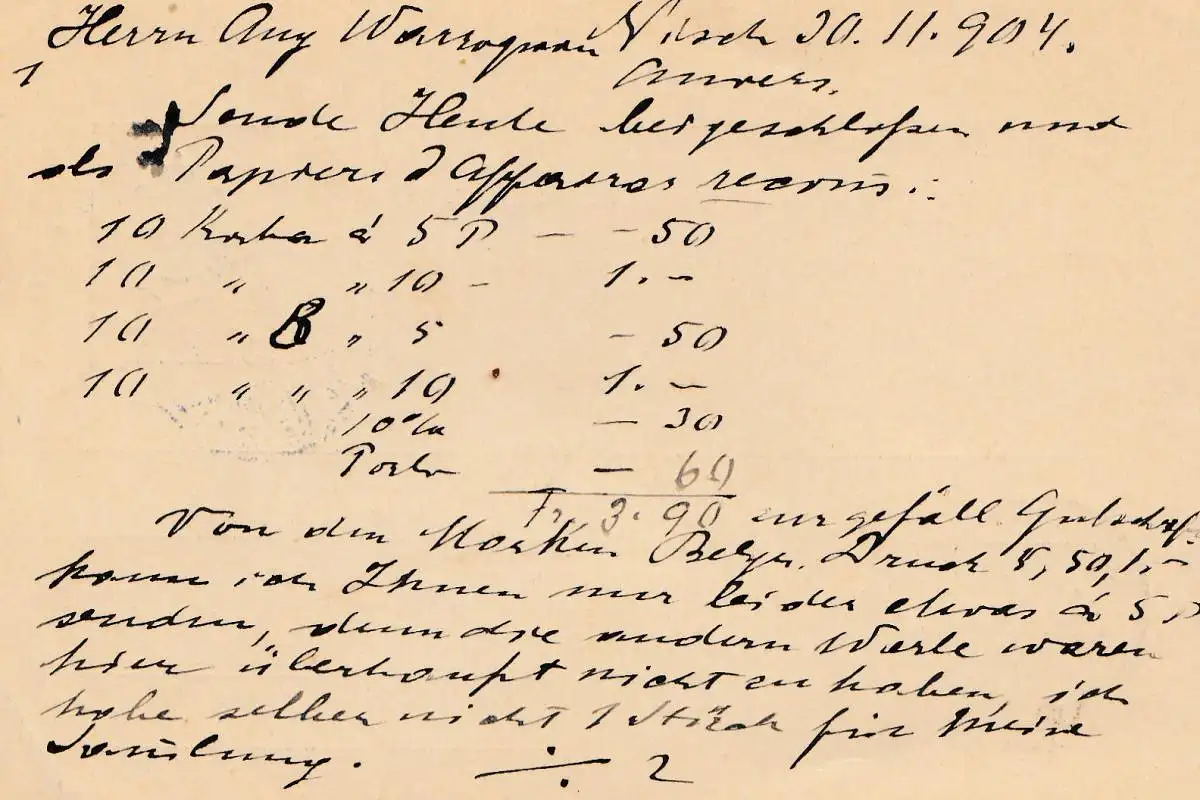 Herrn Aug Nisch 30. 11. 904.
Anvers.
1
Sende Heute beigeschloßen und
als Papiers d'Affaires recom:
10 à 5 P — — 50
10 " " 10 — 1.—
10 " B " 5 — 50
10 " " " 10 1.—
10% — 30
Porto — 60
Fr. 3.90 zur gefäll. Gutschrift
Von den Marken Belgr. Druck 5, 50, 1.—
kann ich Ihnen nur leider etwas à 5 P
senden, denn die andern Werte waren
hier überhaupt nicht zu haben, ich
habe selber nicht 1 Stück für Meine
Samlung. ./. 2